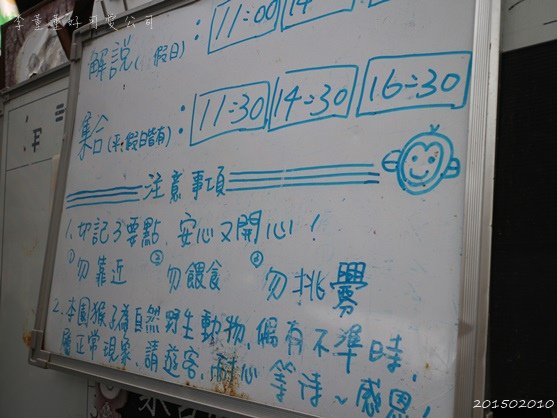 李董事好可愛公司
解說(假日): 11:00 14
集合(平.假日皆有): 11:30 14:30 16:30
注意事項
1.切記3要點,安心又開心!
①勿靠近 ②勿餵食 ③勿挑釁
2.本園猴子為自然野生動物,偶有不準時,
屬正常現象,請遊客,耐心等待~感恩!
201502010